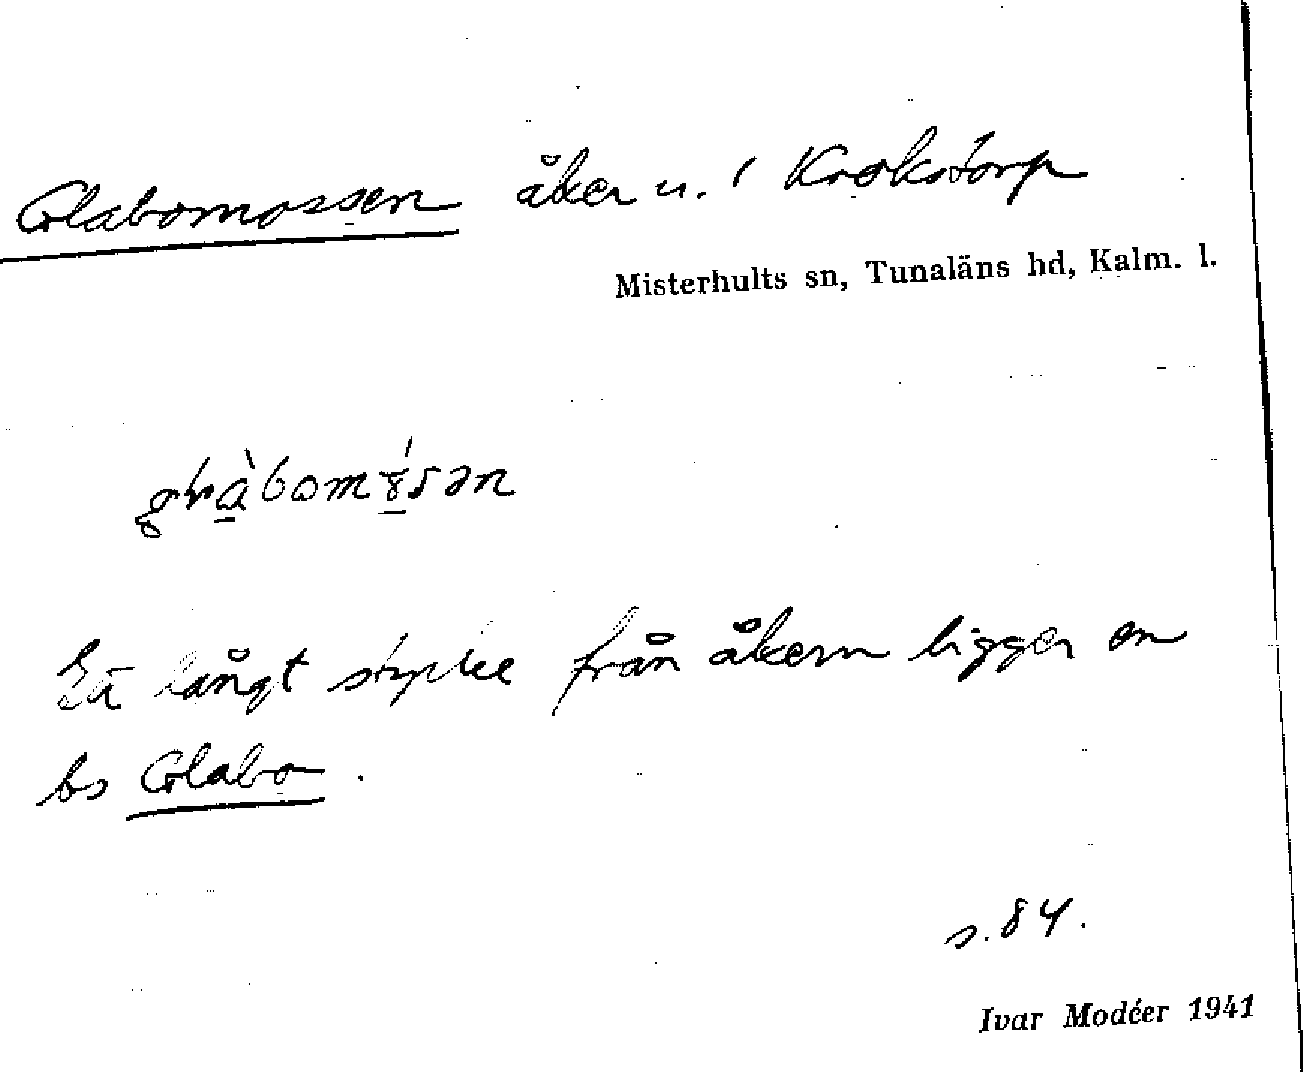 Glabomossen åker u. 1 Krokstorp
Misterhults sn, Tunaläns hd, Kalm. l.
Ett långt stycke från åkern ligger en
bs Glabo.
s. 84.
Ivar Modéer 1941